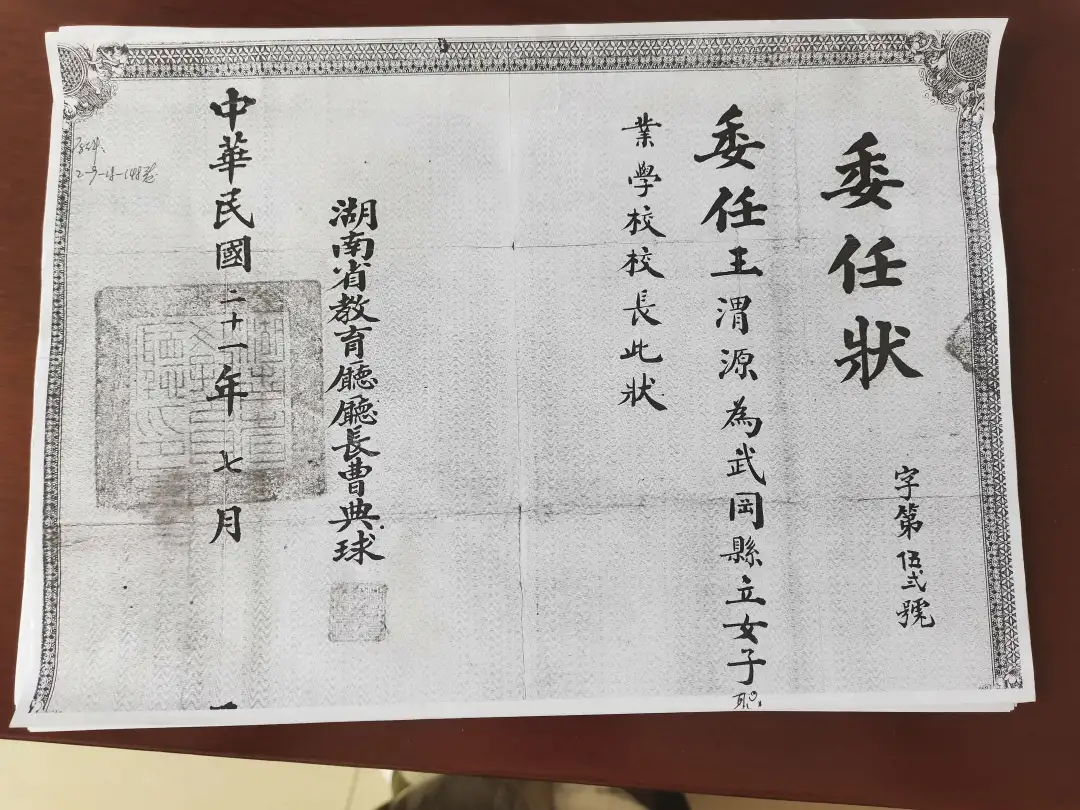 委任狀
字第伍弍號
委任王渭源為武岡縣立女子职
業學校校長此狀
湖南省教育廳廳長曹典球
中華民國二十一年七月